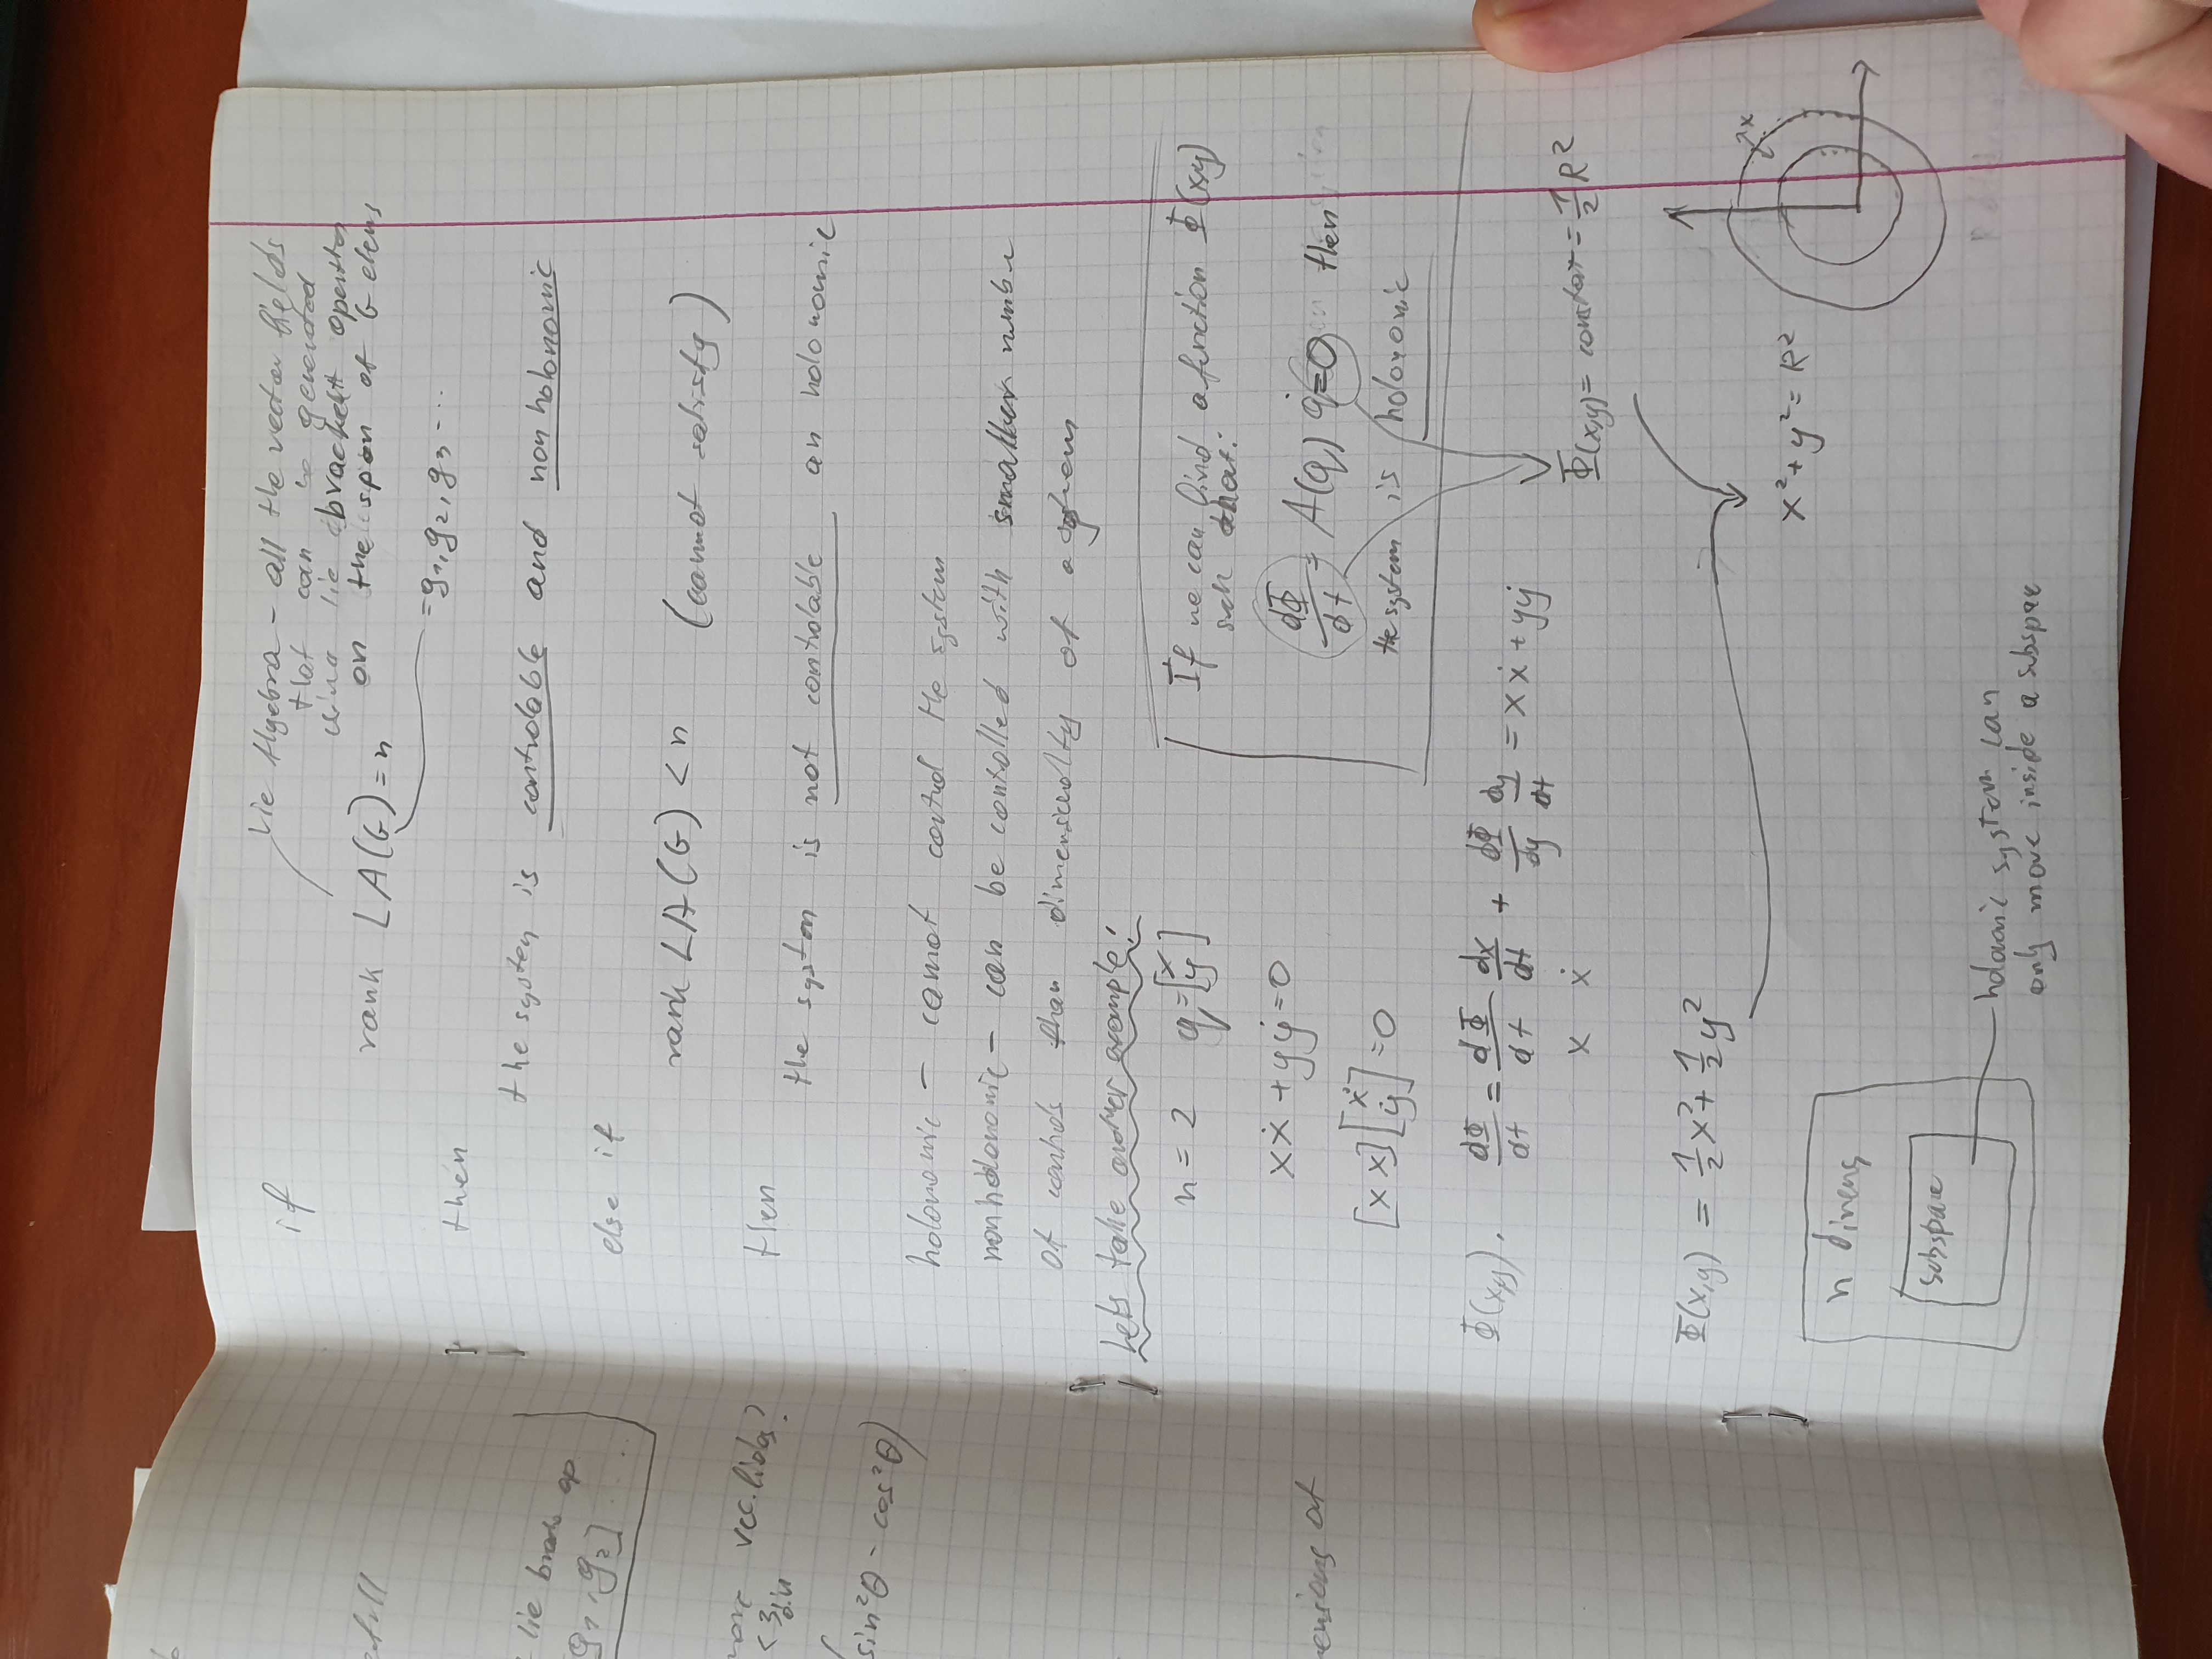 if
Lie Algebra - all the vector fields
that can be generated
using lie brackett operator
on the span of G elems
rank LA(G) = n
= g1, g2, g3 ...
then
the system is controlable and non holonomic
else if
rank LA(G) < n (cannot satisfy)
then
the system is not controlable an holonomic
holonomic - cannot control the system
nonholonomic - can be controlled with smaller number
of controls than dimensionolty of a system
Lets take another example:
n = 2 q = [x y]
xẋ + yẏ = 0
[x x][ẋ ẏ] = 0
If we can find a function Φ(x,y)
such that:
dΦ/dt = A(q) q̇ = 0 then
the system is holonomic
Φ(x,y). dΦ/dt = dΦ/dt dx/dt + dΦ/dy dy/dt = xẋ + yẏ
x ẋ
Φ(x,y) = constant = 1/2 R²
Φ(x,y) = 1/2 x² + 1/2 y²
x² + y² = R²
x
n dimens
subspace
holonomic system can
only move inside a subspace
lie brack op
g1, g2] ...
more vec. fields?
< 3
sin²θ - cos²θ)
mensions of